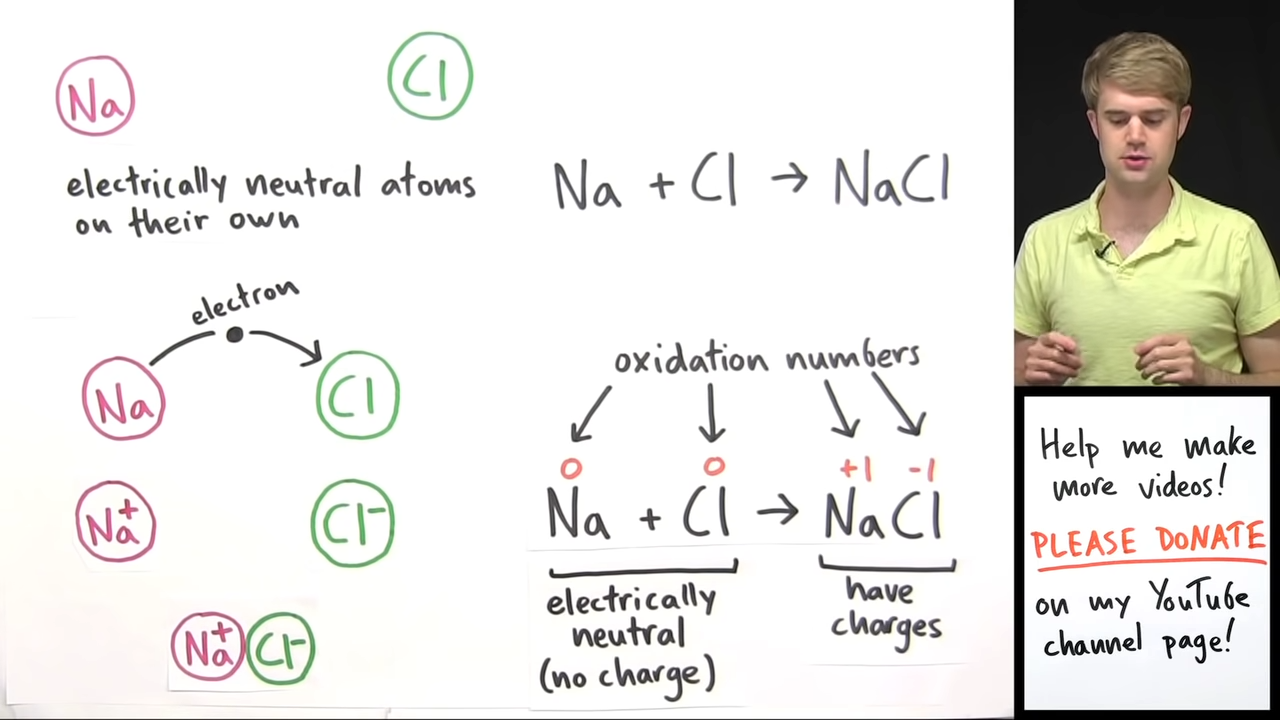 Na
Cl
electrically neutral atoms
on their own
electron
Na
Cl
Na+
Cl-
Na+ Cl-
Na + Cl → NaCl
oxidation numbers
0 0 +1 -1
Na + Cl → NaCl
electrically
neutral
(no charge)
have
charges
Help me make
more videos!
PLEASE DONATE
on my YouTube
channel page!